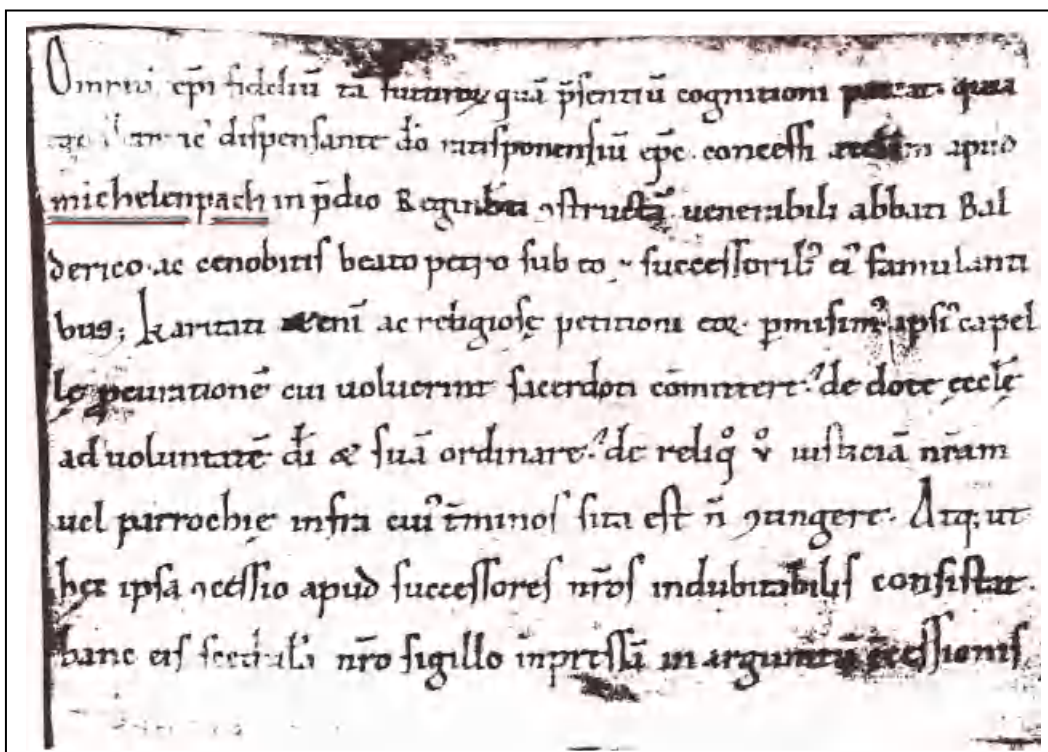 Omniū xp̄i fideliū tā futuroꝝ quā p̄sentiū cognitioni pateat quia
dispensante dō ratisponensiū ep̄c concessi apud
michelenpach in p̄dio Reginb ꝯstructā uenerabili abbati Bal
derico ac cenobitis beato petro sub eo ⁊ successorib᷒ ei᷒ famulanti
bus; Karitati eni ac religiosę petitioni eoꝝ pmisim᷒ ipsi᷒ capel
lę pcurationē cui uoluerint sacerdoti cōmittere. de dote ecclę
ad uoluntatē dī & suā ordinare. de reliq̊ v̊ iusticiā nrām
uel parrochię infra cui᷒ t̄minos sita est n̄ ꝯtingere. Atq; ut
hec ipsa ꝯcessio apud successores nr̄os indubitabilis consistat.
hanc eis nr̄o sigillo inpressā in argumtū cessionis